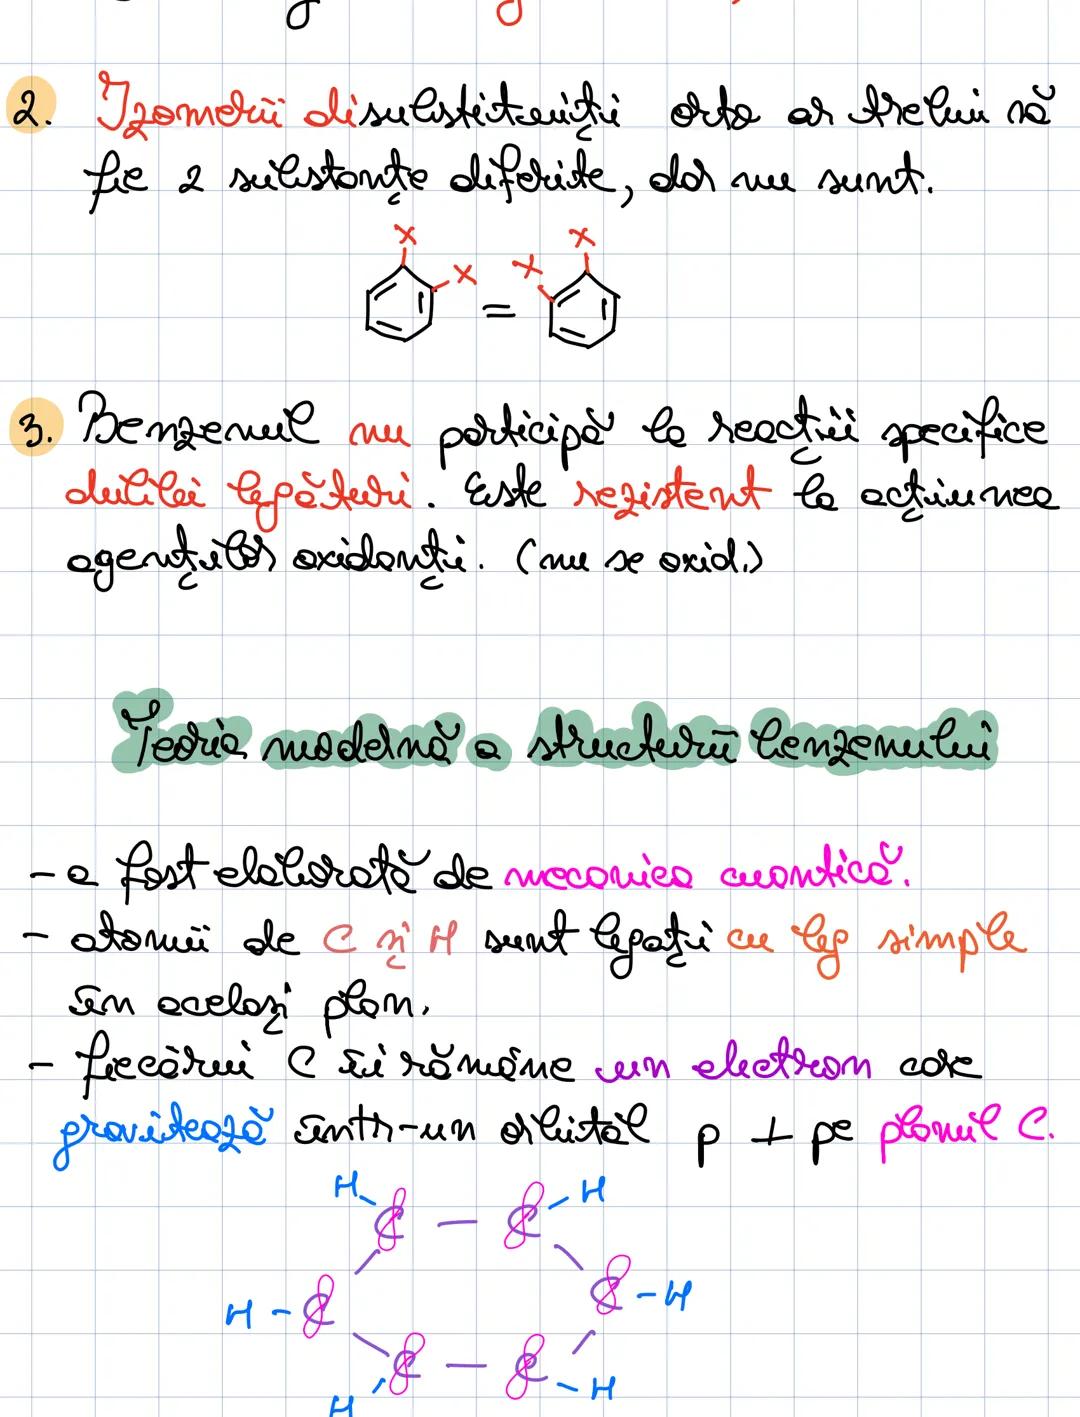 2. Izomerii disubstituiți orto ar trebui să
fie 2 substanțe diferite, dar nu sunt.
X X
X = X
3. Benzenul nu participă la reacții specifice
dublei legături. Este rezistent la acțiunea
agenților oxidanți. (nu se oxid.)
Teoria modernă a structurii benzenului
- a fost elaborată de mecanica cuantică.
- atomii de C și H sunt legați cu leg simple
în același plan.
- fiecărui C îi rămâne un electron care
gravitează într-un orbital p ⊥ pe planul C.
H C - C - H
H - C C - H
H C - C - H